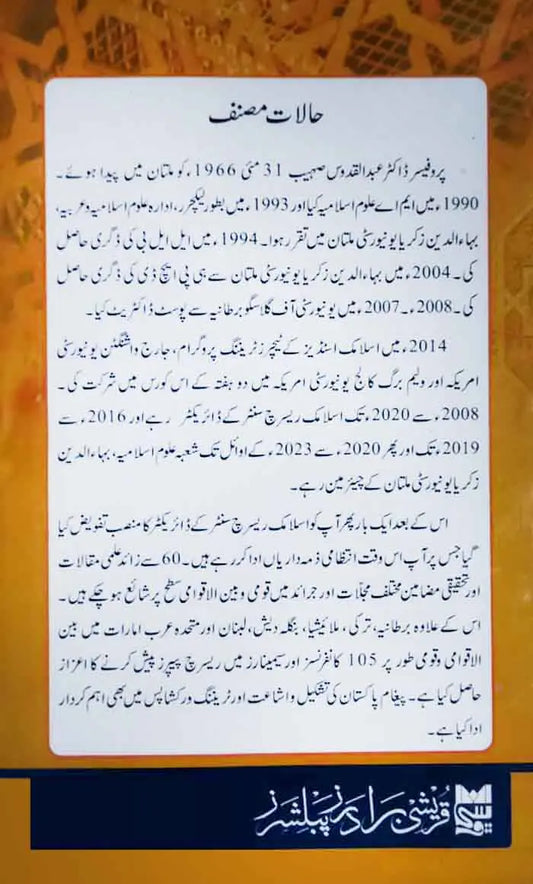 حالات مصنف
پروفیسر ڈاکٹر عبدالقدوس صہیب 31 مئی 1966ء کو ملتان میں پیدا ہوئے۔
1990ء میں ایم اے علوم اسلامیہ کیا اور 1993ء میں بطور لیکچرر، ادارہ علوم اسلامیہ و عربیہ،
بہاءالدین زکریا یونیورسٹی ملتان میں تقرر ہوا۔ 1994ء میں ایل ایل بی کی ڈگری حاصل
کی۔ 2004ء میں بہاءالدین زکریا یونیورسٹی ملتان سے ہی پی ایچ ڈی کی ڈگری حاصل
کی۔ 2008ء۔ 2007ء میں یونیورسٹی آف گلاسگو برطانیہ سے پوسٹ ڈاکٹریٹ کیا۔
2014ء میں اسلامک اسٹڈیز کے ٹیچرز ٹریننگ پروگرام، جارج واشنگٹن یونیورسٹی
امریکہ اور ولیم برگ کالج یونیورسٹی امریکہ میں دو ہفتہ کے اس کورس میں شرکت کی۔
2008ء سے 2020ء تک اسلامک ریسرچ سنٹر کے ڈائریکٹر رہے اور 2016ء سے
2019ء تک اور پھر 2020ء سے 2023ء کے اوائل تک شعبہ علوم اسلامیہ، بہاءالدین
زکریا یونیورسٹی ملتان کے چیئرمین رہے۔
اس کے بعد ایک بار پھر آپ کو اسلامک ریسرچ سنٹر کے ڈائریکٹر کا منصب تفویض کیا
گیا جس پر آپ اس وقت انتظامی ذمہ داریاں ادا کر رہے ہیں۔ 60 سے زائد علمی مقالات
اور تحقیقی مضامین مختلف مجلات اور جرائد میں قومی و بین الاقوامی سطح پر شائع ہو چکے ہیں۔
اس کے علاوہ برطانیہ، ترکی، ملائیشیا، بنگلہ دیش، لبنان اور متحدہ عرب امارات میں بین
الاقوامی و قومی طور پر 105 کانفرنسز اور سیمینارز میں ریسرچ پیپرز پیش کرنے کا اعزاز
حاصل کیا ہے۔ پیغام پاکستان کی تشکیل و اشاعت اور ٹریننگ ورکشاپس میں بھی اہم کردار
ادا کیا ہے۔
قریشی برادرز پبلشرز